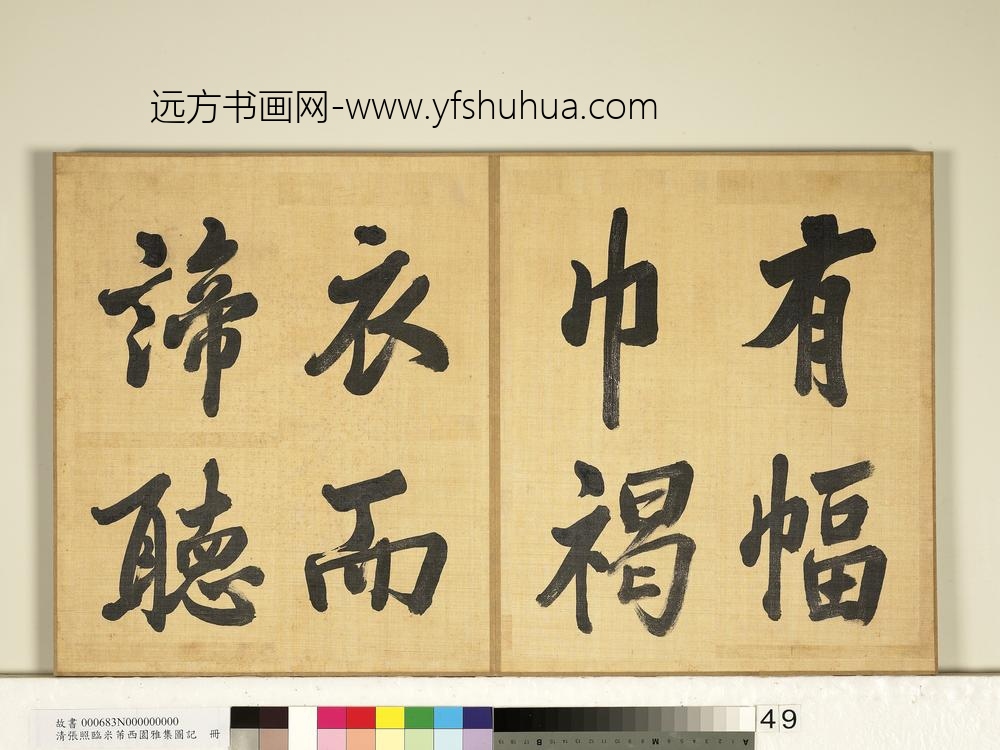 远方书画网-www.yfshuhua.com
有幅
巾褐
衣而
諦聽
故書 000683N000000000
清張照臨米芾西園雅集圖記 冊
49